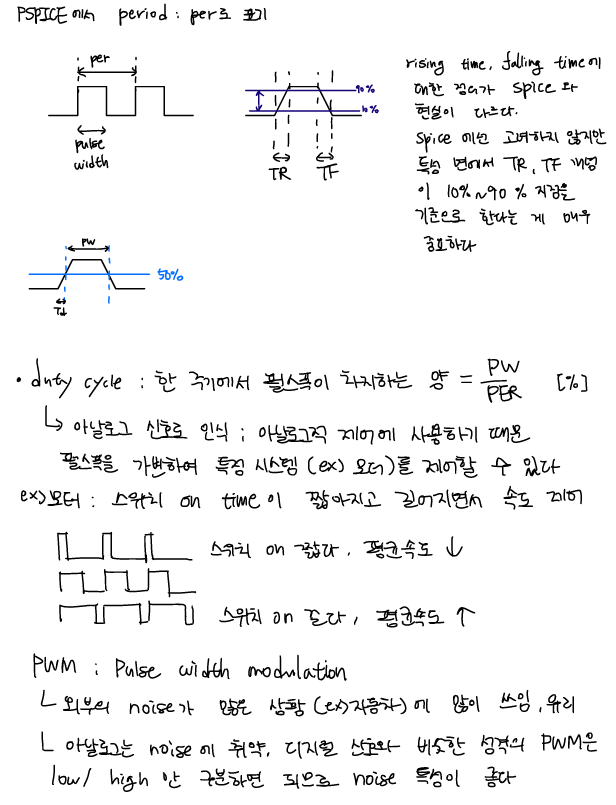 PSPICE에서 period : per로 표기
per
pulse
width
90%
10%
TR
TF
rising time, falling time에
대한 정의가 spice 와
현실이 다르다.
spice 에선 고려하지 않지만
특성 면에서 TR, TF 개념
이 10%~90% 지점을
기준으로 한다는 게 매우
중요하다
PW
50%
Td
• duty cycle : 한 주기에서 펄스폭이 차지하는 양 = PW/PER [%]
↳ 아날로그 신호로 인식 ; 아날로그적 제어에 사용하기 때문
펄스폭을 가변하여 특정 시스템 (ex) 모터)를 제어할 수 있다
ex) 모터 : 스위치 on time이 짧아지고 길어지면서 속도 제어
스위치 on 짧다, 평균속도 ↓
스위치 on 길다, 평균속도 ↑
PWM : Pulse width modulation
└ 외부의 noise가 많은 상황 (ex) 자동차)에 많이 쓰임, 유리
└ 아날로그는 noise에 취약, 디지털 신호와 비슷한 성격의 PWM은
low/ high 만 구분하면 되므로 noise 특성이 좋다